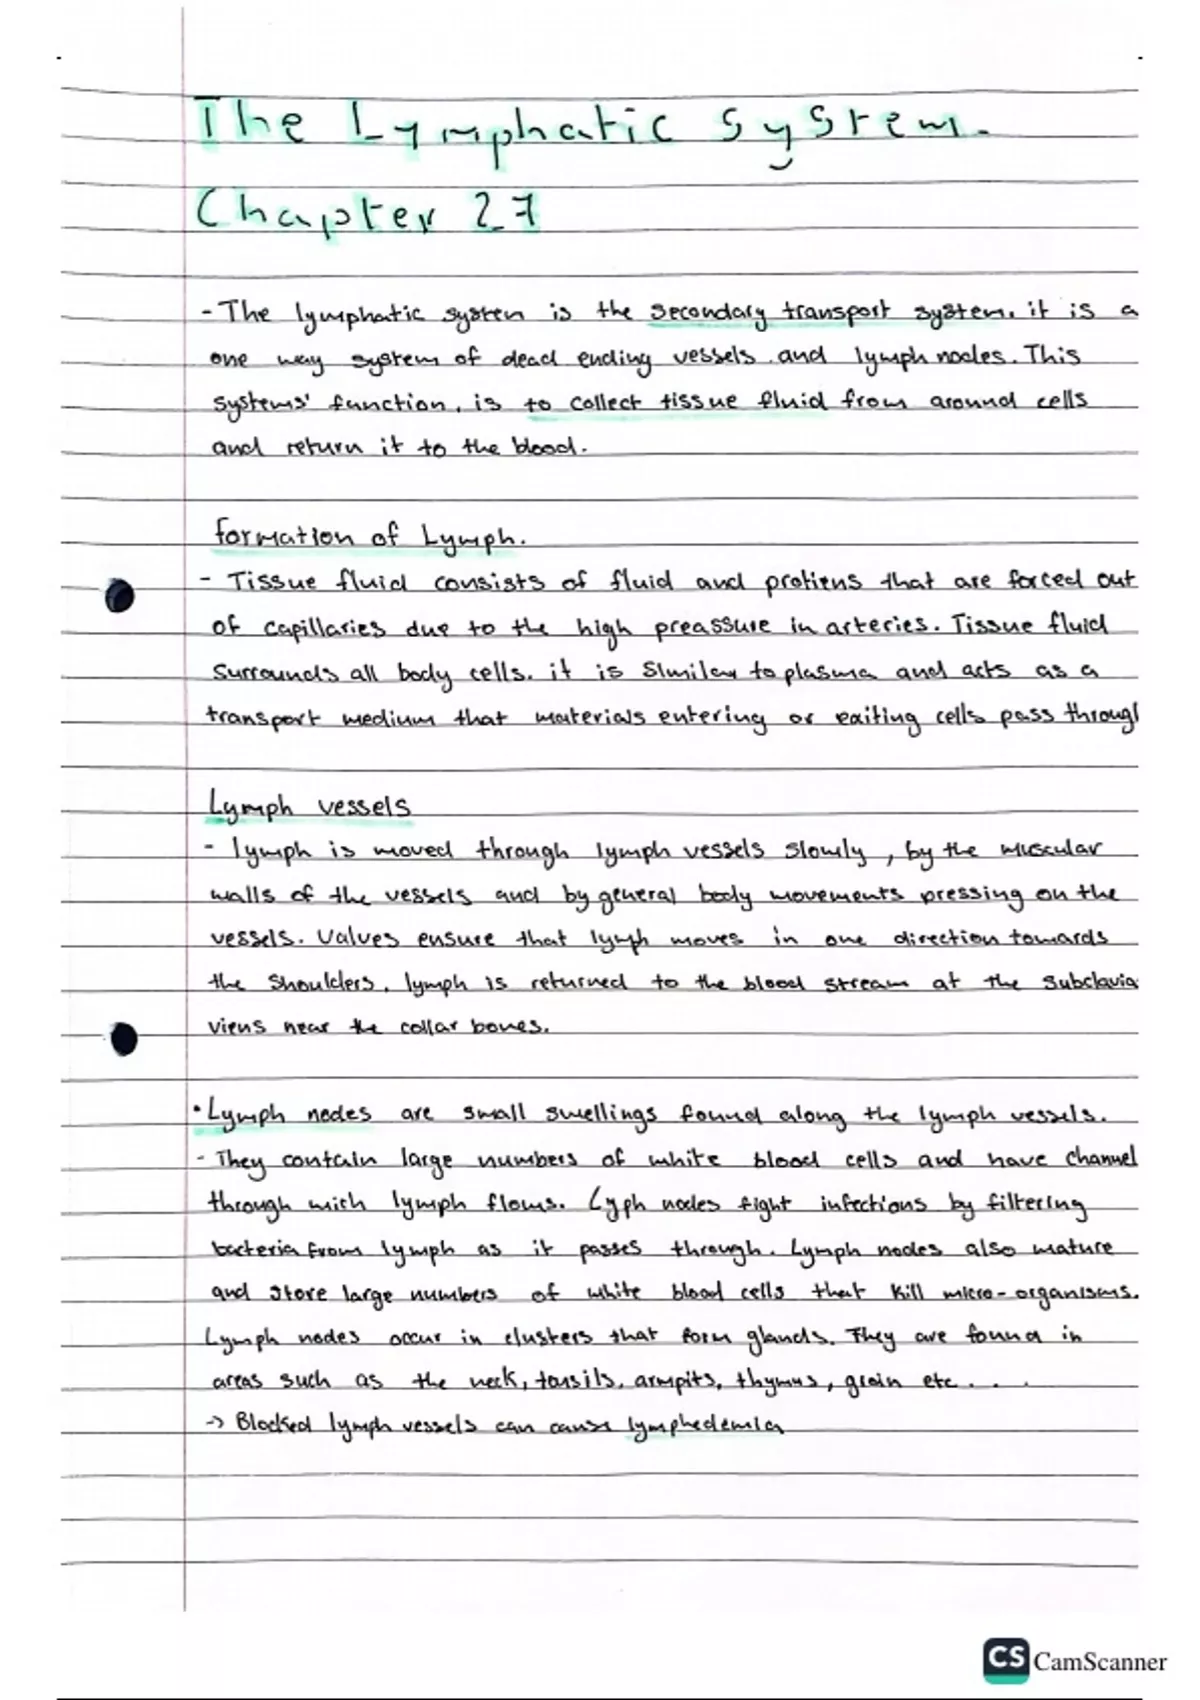 The Lymphatic System.
Chapter 27
- The lymphatic system is the secondary transport system, it is a
one way system of dead ending vessels and lymph nodes. This
systems' function, is to collect tissue fluid from around cells
and return it to the blood.
formation of Lymph.
- Tissue fluid consists of fluid and protiens that are forced out
of capillaries due to the high preassure in arteries. Tissue fluid
surrounds all body cells. it is similar to plasma and acts as a
transport medium that materials entering or exiting cells pass through
Lymph vessels
- lymph is moved through lymph vessels slowly, by the muscular
walls of the vessels and by general body movements pressing on the
vessels. Valves ensure that lymph moves in one direction towards
the shoulders. lymph is returned to the blood stream at the subclavia
viens near the collar bones.
• Lymph nodes are small swellings found along the lymph vessels.
- They contain large numbers of white blood cells and have channel
through wich lymph flows. Lyph nodes fight infections by filtering
bacteria from lymph as it passes through. Lymph nodes also mature
and store large numbers of white blood cells that kill micro-organisms.
Lymph nodes occur in clusters that form glands. They are found in
areas such as the neck, tonsils, armpits, thymus, groin etc...
-> Blocked lymph vessels can cause lymphedemia
CS CamScanner